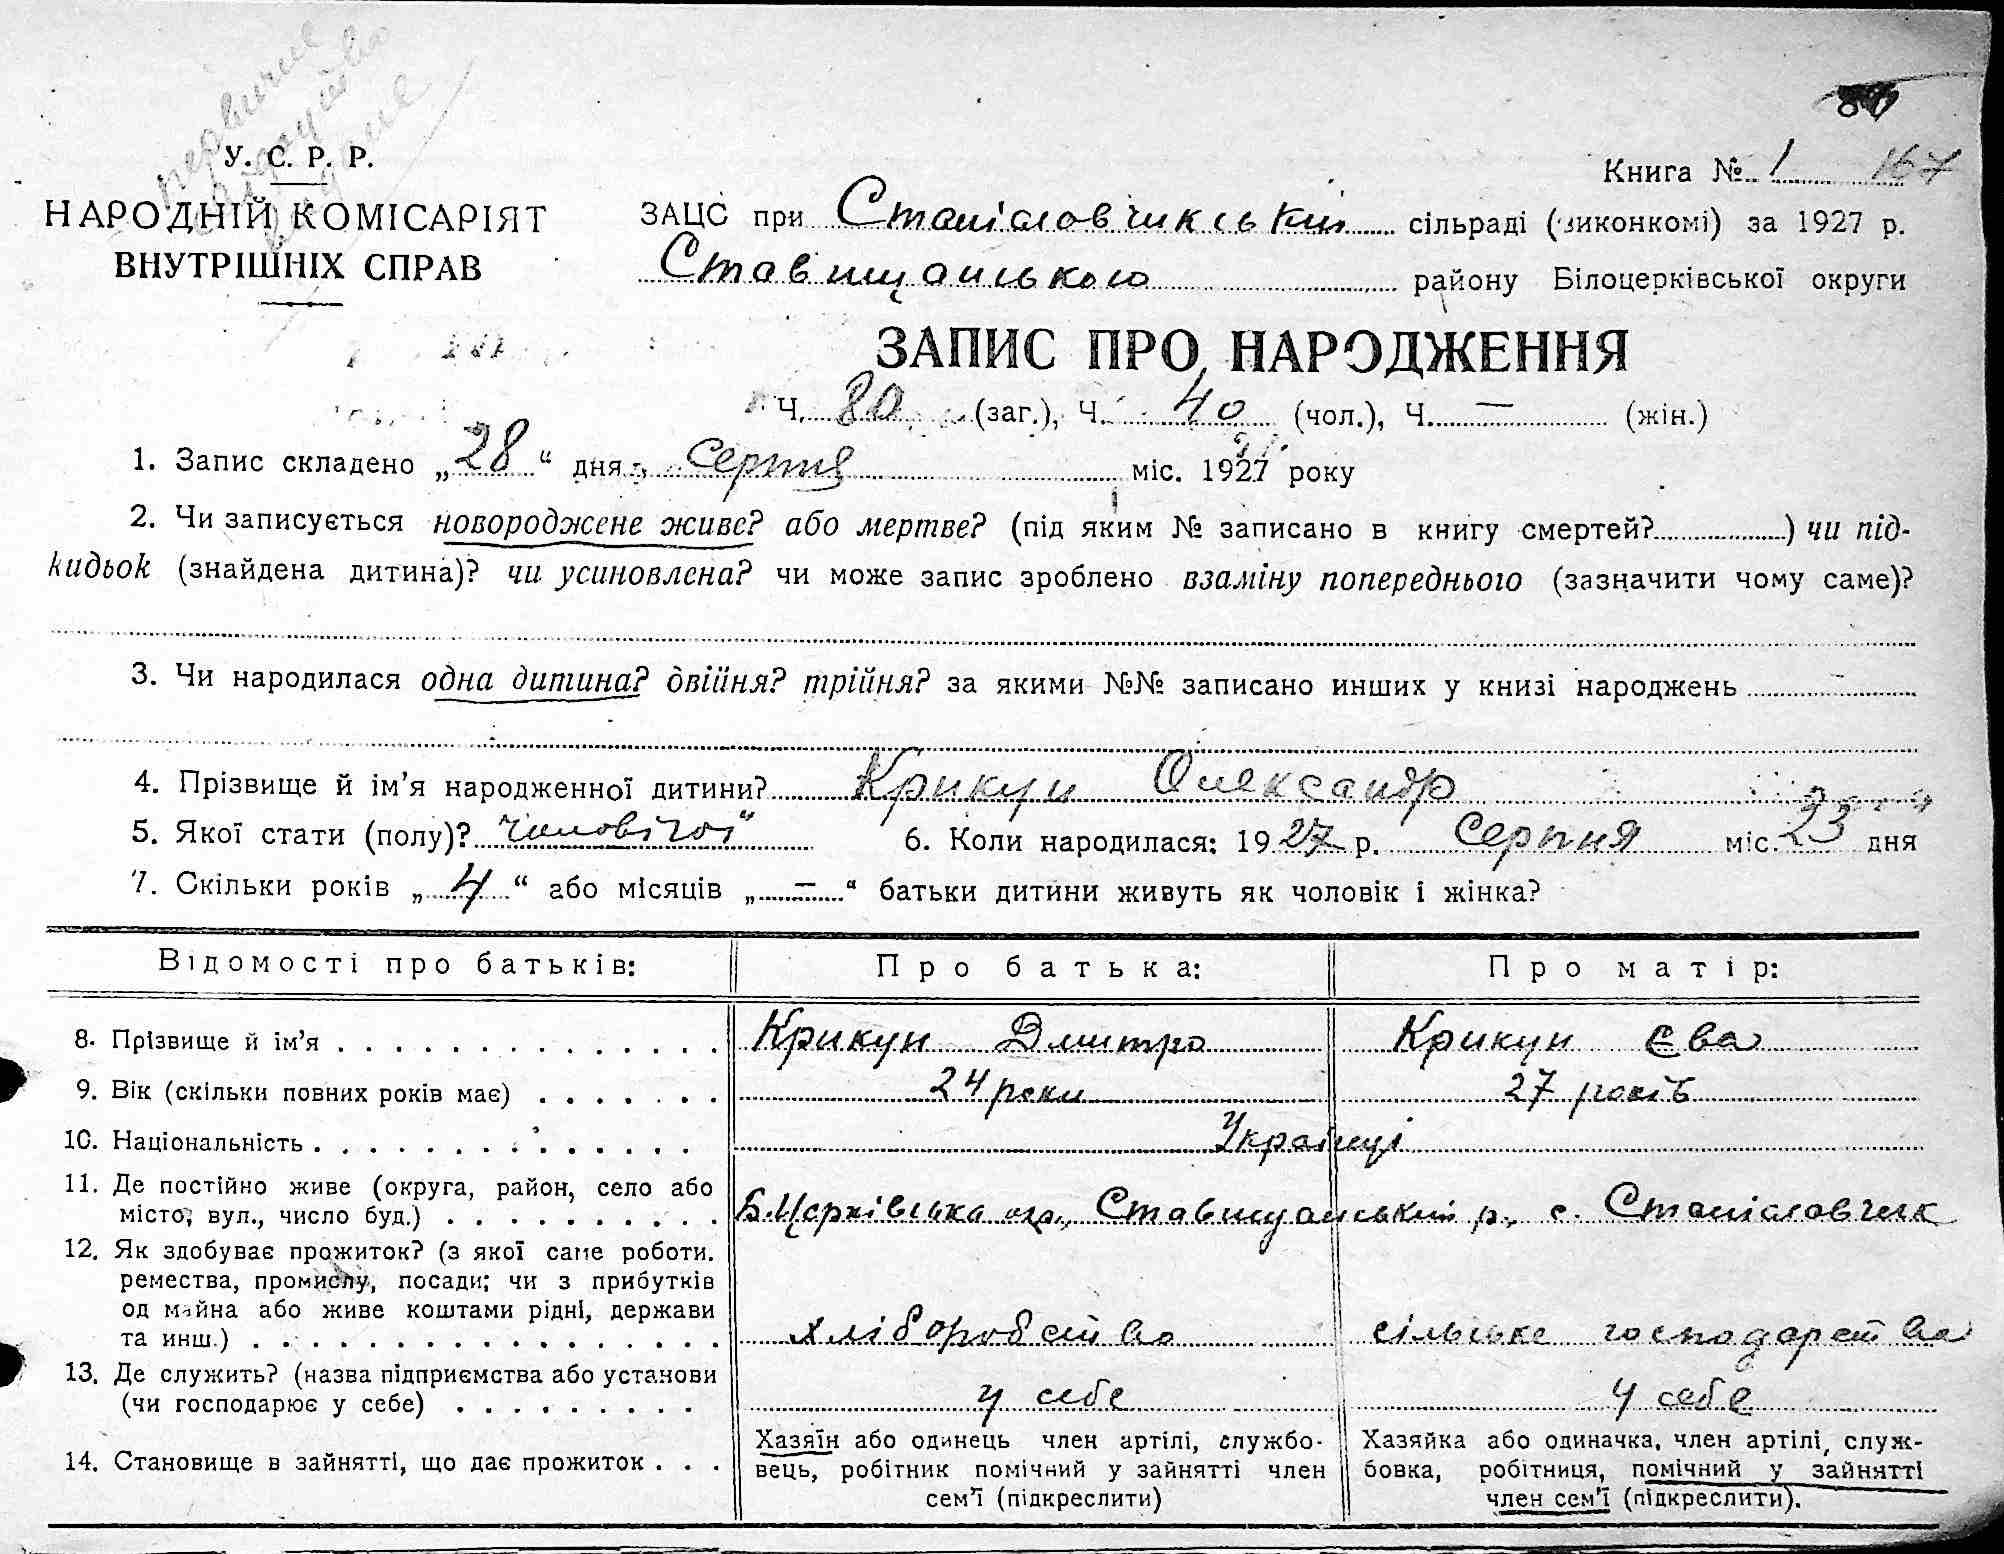 У. С. Р. Р.
НАРОДНІЙ КОМІСАРІЯТ
ВНУТРІШНІХ СПРАВ
Книга № 1 167
ЗАЦС при Станіславчикській сільраді (виконкомі) за 1927 р.
Ставищанського району Білоцерківської округи
ЗАПИС ПРО НАРОДЖЕННЯ
Ч. 80 (заг.), Ч. 40 (чол.), Ч. — (жін.)
1. Запис складено „28“ дня Серпня міс. 1927 року
2. Чи записується новороджене живе? або мертве? (під яким № записано в книгу смертей? ) чи під-
кидьок (знайдена дитина)? чи усиновлена? чи може запис зроблено взаміну попереднього (зазначити чому саме)?
3. Чи народилася одна дитина? двійня? трійня? за якими №№ записано инших у книзі народжень
4. Прізвище й ім’я народженної дитини? Крикун Олександр
5. Якої стати (полу)? чоловічої 6. Коли народилася: 1927 р. Серпня міс. 23 дня
7. Скільки років „4“ або місяців „—“ батьки дитини живуть як чоловік і жінка?
Відомості про батьків: Про батька: Про матір:
8. Прізвище й ім’я Крикун Дмитро Крикун Єва
9. Вік (скільки повних років має) 24 роки 27 років
10. Національність Українці
11. Де постійно живе (округа, район, село або
місто, вул., число буд.) Б.Церківська окр., Ставищанський р., с. Станіславчик
12. Як здобуває прожиток? (з якої саме роботи.
ремества, промислу, посади; чи з прибутків
од майна або живе коштами рідні, держави
та инш.) хліборобство сільське господарство
13. Де служить? (назва підприємства або установи
(чи господарює у себе) у себе у себе
14. Становище в зайнятті, що дає прожиток
Хазяїн або одинець член артілі, службо-
вець, робітник помічний у зайнятті член
сем’ї (підкреслити)
Хазяйка або одиначка, член артілі, служ-
бовка, робітниця, помічний у зайнятті
член сем’ї (підкреслити).